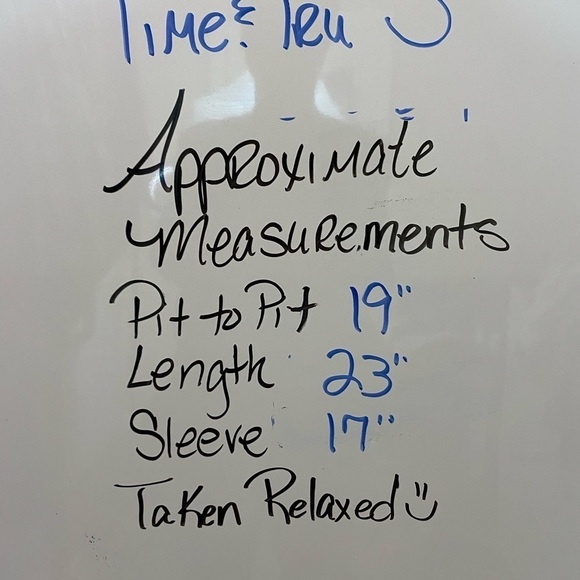 Time & Tru
Approximate
Measurements
Pit to Pit 19"
Length 23"
Sleeve 17"
Taken Relaxed